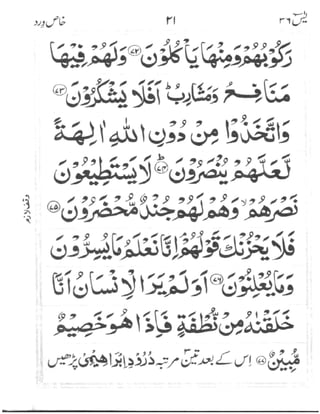 یٰسٓ ۳۶ ۲۱ خاص ورد
رَكُوْبُهُمْ وَمِنْهَا يَاْكُلُوْنَ ﴿۷۲﴾ وَلَهُمْ فِيْهَا
مَنَافِعُ وَمَشَارِبُ ؕ اَفَلَا يَشْكُرُوْنَ ﴿۷۳﴾
وَاتَّخَذُوْا مِنْ دُوْنِ اللّٰهِ اٰلِهَةً
لَّعَلَّهُمْ يُنْصَرُوْنَ ﴿۷۴﴾ ؕ لَا يَسْتَطِيْعُوْنَ
نَصْرَهُمْ ۙ وَهُمْ لَهُمْ جُنْدٌ مُّحْضَرُوْنَ ﴿۷۵﴾
فَلَا يَحْزُنْكَ قَوْلُهُمْ ۘ اِنَّا نَعْلَمُ مَا يُسِرُّوْنَ
وَمَا يُعْلِنُوْنَ ﴿۷۶﴾ اَوَلَمْ يَرَ الْاِنْسَانُ اَنَّا
خَلَقْنٰهُ مِنْ نُّطْفَةٍ فَاِذَا هُوَ خَصِيْمٌ
مُّبِيْنٌ ﴿۷۷﴾ اس کے بعد تین مرتبہ دُرُودِ اِبْرَاهِيْمِیْ پڑھیں
وقف لازم